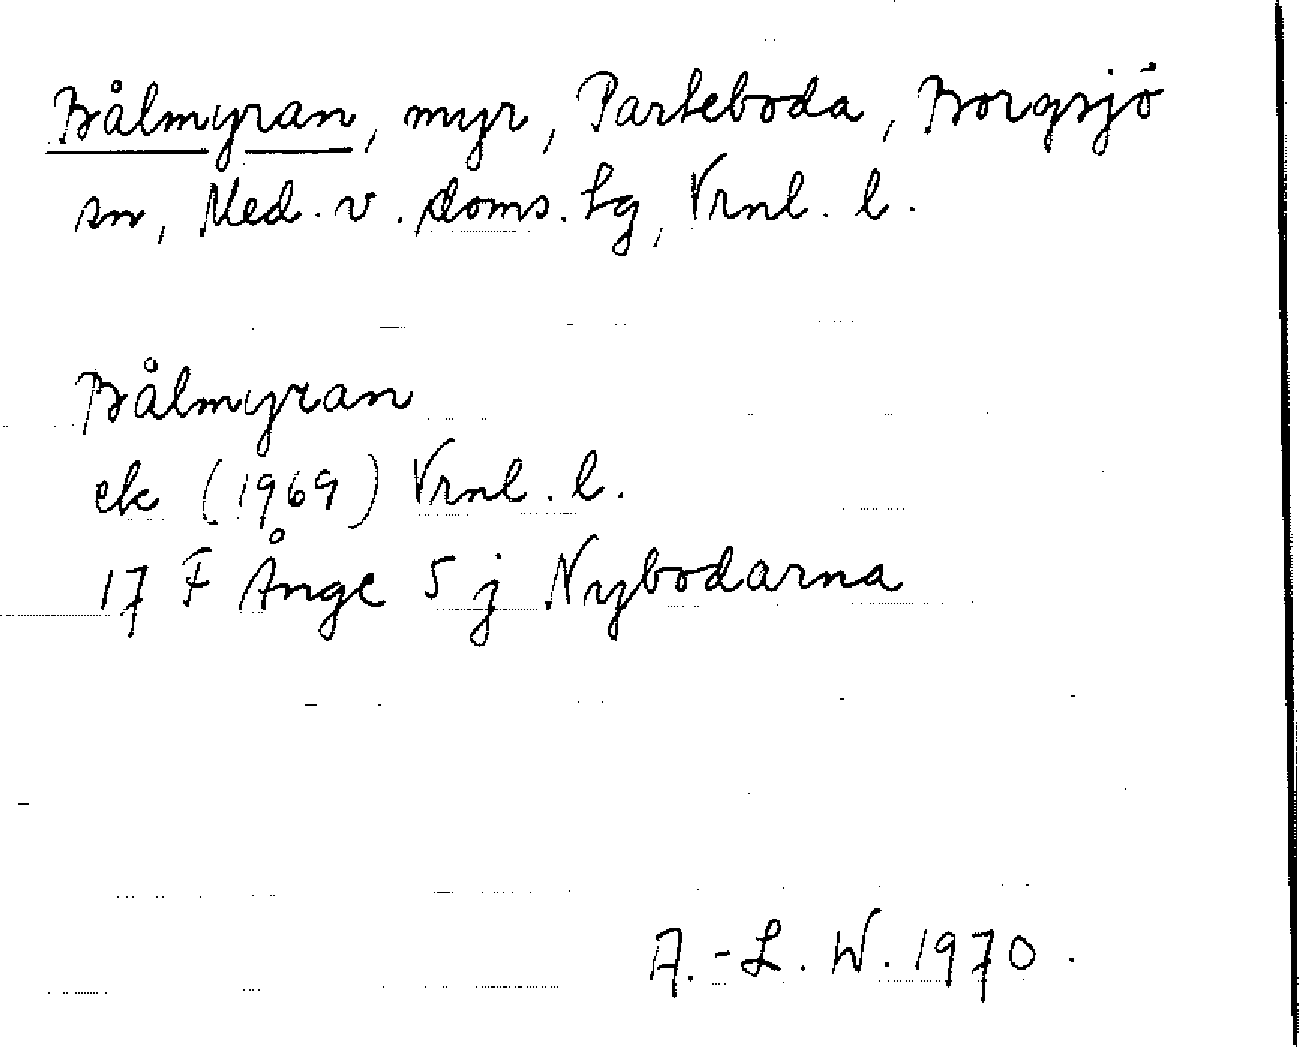 Bålmyran, myr, Parteboda, Borgsjö
sn, Med. v. doms. lg, Vrnl. l.
Bålmyran
ek (1969) Vrnl. l.
17 F Ånge 5 j Nybodarna
A.-L. W. 1970.